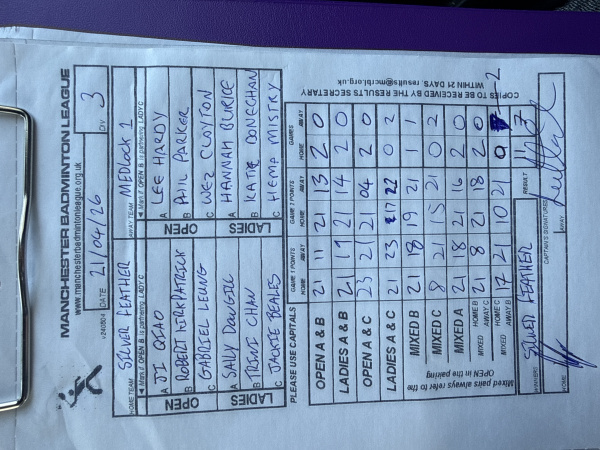 MANCHESTER BADMINTON LEAGUE
www.manchesterbadmintonleague.org.uk
v240804 DATE 21/04/26 DIV 3
HOME TEAM SILVER FEATHER AWAY TEAM MEDLOCK 1
Mark if OPEN B is partnering LADY C Mark if OPEN B is partnering LADY C
OPEN A JI QIAO OPEN A LEE HARDY
B ROBERT KIRKPATRICK B PHIL PARKER
C GABRIEL LEUNG C WEZ CLOYTON
LADIES A SALLY LADIES A HANNAH BURKE
B CHAN B KATE DONEGHAN
C JACKIE BEALES C HEMA MISTRY
PLEASE USE CAPITALS GAME 1 POINTS GAME 2 POINTS GAMES
HOME AWAY HOME AWAY HOME AWAY
OPEN A & B 21 11 21 13 2 0
LADIES A & B 21 19 21 14 2 0
OPEN A & C 23 21 21 04 2 0
LADIES A & C 21 23 22 0 2
MIXED B 21 18 19 21 1 1
MIXED C 8 21 15 21 0 2
MIXED A 21 18 21 16 2 0
MIXED HOME B AWAY C 21 8 21 18 2 0
MIXED HOME C AWAY B 17 21 10 21 0 2
Mixed pairs always refer to the OPEN in the pairing
WINNERS SILVER FEATHER RESULT 11 7
CAPTAIN'S SIGNATURES
HOME AWAY
COPIES TO BE RECEIVED BY THE RESULTS SECRETARY
WITHIN 21 DAYS. results@mcrbl.org.uk